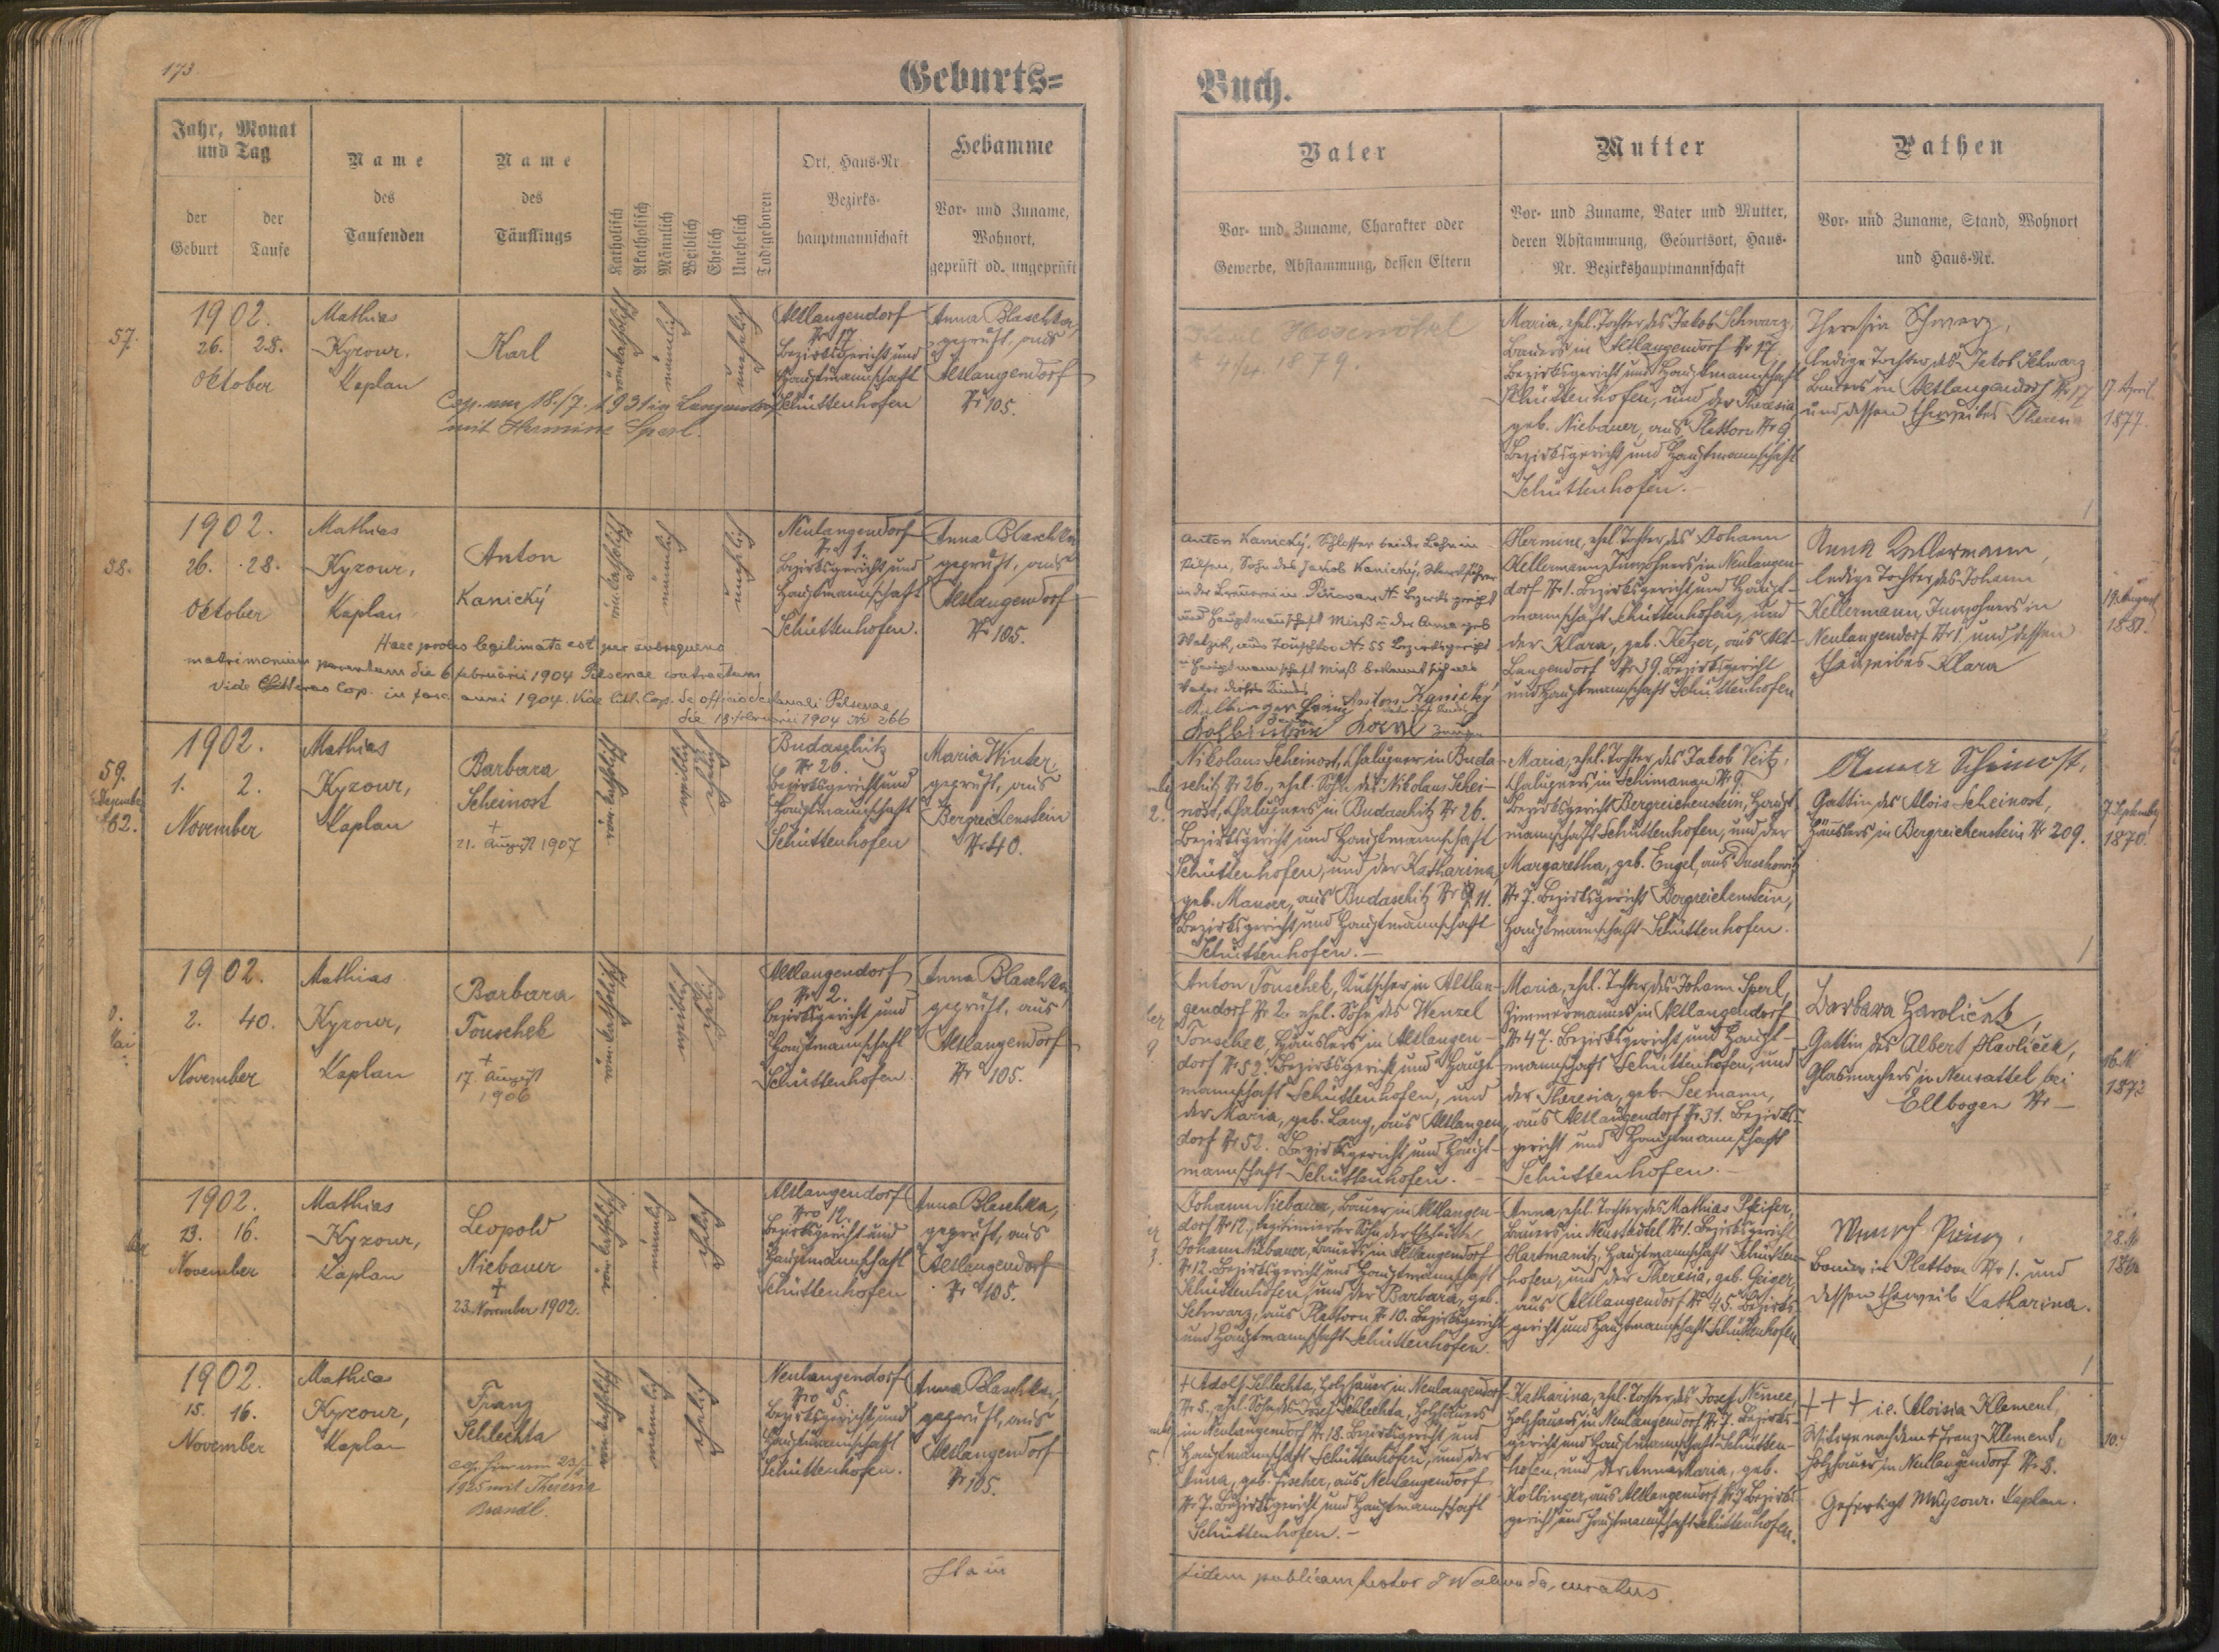 173.
Geburts=
Buch.
Jahr, Monat
und Tag
der
Geburt
der
Taufe
Name
des
Taufenden
Name
des
Täuflings
Katholisch
Akatholisch
Männlich
Weiblich
Ehelich
Unehelich
Todtgeboren
Ort, Haus-Nr.
Bezirks-
hauptmannschaft
Hebamme
Vor- und Zuname,
Wohnort,
geprüft od. ungeprüft
Vater
Vor- und Zuname, Charakter oder
Gewerbe, Abstammung, dessen Eltern
Mutter
Vor- und Zuname, Vater und Mutter,
deren Abstammung, Geburtsort, Haus-
Nr. Bezirkshauptmannschaft
Pathen
Vor- und Zuname, Stand, Wohnort
und Haus-Nr.
57.
1902.
26. 28.
Oktober
Mathias
Kyzour,
Kaplan
Karl
Cop. am 18./7. 1931 in Langendorf
mit Hermine Sperl.
römkatholisch
männlich
unehelich
Altlangendorf
Nr 17
Bezirksgericht und
Hauptmannschaft
Schüttenhofen
Anna Blaschka,
geprüft, aus
Altlangendorf
Nr 105.
* 4/4. 1879.
Maria, ehel. Tochter des Jakob Schwarz,
Bauers in Altlangendorf Nr 17,
Bezirksgericht und Hauptmannschaft
Schüttenhofen, und der Theresia
geb. Niebauer, aus Plattorn Nr 9
Bezirksgericht und Hauptmannschaft
Schüttenhofen.
Theresia Schwarz,
ledige Tochter des Jakob Schwarz
Bauers in Altlangendorf Nr 17
und dessen Eheweibes Theresia
17 April
1877.
58.
1902.
26. 28.
Oktober
Mathias
Kyzour,
Kaplan
Anton
Kanický
Haec proles legitimata est per subsequens
matrimonium parentum die 6 februarii 1904 Pilsenae contractum
Vide Litteras Cop. in fasc. anni 1904. Vide litt. Cop. de officio decanali Pilsenae
die 18. februarii 1904 No 266
röm.katholisch
männlich
unehelich
Neulangendorf
Nr 1.
Bezirksgericht und
Hauptmannschaft
Schüttenhofen.
Anna Blaschka
geprüft, aus
Altlangendorf
Nr 105.
Anton Kanický, Schlosser bei der Bahn in
Pilsen, Sohn des Jakob Kanický,
in der Brauerei in
und Hauptmannschaft Mies u. der Anna geb.
aus Nr 55 Bezirksgericht
u Hauptmannschaft Mies bekannt sich als
Vater dieses Kindes
Anton Kanický
Hermine, ehel. Tochter des Johann
Kellermann, Inwohners in Neulangen-
dorf Nr 1. Bezirksgericht und Haupt-
mannschaft Schüttenhofen, und
der Klara, geb. Ketzer, aus Alt-
Langendorf Nr 39. Bezirksgericht
und Hauptmannschaft Schüttenhofen
Anna Kellermann,
ledige Tochter des Johann
Kellermann, Inwohners in
Neulangendorf Nr 1 und dessen
Eheweibes Klara
19. August
1881.
59.
1902.
1. 2.
November
Mathias
Kyzour,
Kaplan
Barbara
Scheinost
+
21. August 1907
röm. katholisch
weiblich
ehelich
Budaschitz
Nr 26.
Bezirksgericht und
Hauptmannschaft
Schüttenhofen
Maria Winter,
geprüft, aus
Bergreichenstein
Nr 40.
Nikolaus Scheinost, Chalupner in Buda-
schitz Nr 26., ehel. Sohn des Nikolaus Schei-
nost, Chalupners in Budaschitz Nr 26.
Bezirksgericht und Hauptmannschaft
Schüttenhofen, und der Katharina,
geb. Mauser, aus Budaschitz Nr 11.
Bezirksgericht und Hauptmannschaft
Schüttenhofen.-
Maria, ehel. Tochter des Jakob Veitz,
Chalupners in Schimanau Nr 9.
Bezirksgericht Bergreichenstein, Haupt-
mannschaft Schüttenhofen, und der
Margaretha, geb. Engel, aus Duschowitz
Nr 7. Bezirksgericht Bergreichenstein,
Hauptmannschaft Schüttenhofen.
Anna Scheinost,
Gattin des Alois Scheinost,
Häuslers in Bergreichenstein Nr 209.
7 September
1870.
1902.
2. 40.
November
Mathias
Kyzour,
Kaplan
Barbara
Touschek
+
17. August
1906
röm. katholisch
weiblich
ehelich
Altlangendorf
Nr 2.
Bezirksgericht und
Hauptmannschaft
Schüttenhofen.
Anna Blaschka,
geprüft, aus
Altlangendorf
Nr 105.
Anton Touschek, Kutscher in Altlan-
gendorf Nr 2. ehel. Sohn des Wenzel
Touschek, Häuslers in Altlangen-
dorf Nr 52. Bezirksgericht und Haupt-
mannschaft Schüttenhofen, und
der Maria, geb. Lang, aus Altlangen-
dorf Nr 52. Bezirksgericht und Haupt-
mannschaft Schüttenhofen.-
Maria, ehel. Tochter des Johann Sperl,
Zimmermannes in Altlangendorf
Nr 47. Bezirksgericht und Haupt-
mannschaft Schüttenhofen, und
der Theresia, geb. Seemann,
aus Altlangendorf Nr 31. Bezirks-
gericht und Hauptmannschaft
Schüttenhofen.-
Barbara Havliček,
Gattin des Albert Havliček,
Glasmachers in Neusattel bei
Ellbogen Nr -
1872
1902.
13. 16.
November
Mathias
Kyzour,
Kaplan
Leopold
Niebauer
+
23. November 1902.
röm. katholisch
männlich
ehelich
Altlangendorf
Nro 12.
Bezirksgericht und
Hauptmannschaft
Schüttenhofen
Anna Blaschka,
geprüft, aus
Altlangendorf
Nr 105.
Johann Niebauer, Bauer in Altlangen-
dorf Nr 12, legitimierter Sohn der Eheleute
Johann Niebauer, Bauers in Altlangendorf
Nr 12. Bezirksgericht und Hauptmannschaft
Schüttenhofen, und der Barbara, geb.
Schwarz, aus Plattorn Nr 10. Bezirksgericht
und Hauptmannschaft Schüttenhofen.
Anna, ehel. Tochter des Mathias Pfeifer,
Bauers in Neustadtel Nr 1. Bezirksgericht
Hartmanitz, Hauptmannschaft Schütten-
hofen, und der Theresia, geb. Geiger,
aus Altlangendorf Nr 45. Bezirks-
gericht und Hauptmannschaft Schüttenhofen
Bauer in Plattorn Nr 1. und
dessen Eheweib Katharina.
1902.
15. 16.
November
Mathias
Kyzour,
Kaplan
Franz
Schlechta
1925 mit Theresia
Brandl.
röm. katholisch
männlich
ehelich
Neulangendorf
Nro 5.
Bezirksgericht und
Hauptmannschaft
Schüttenhofen.
Anna Blaschka,
geprüft, aus
Altlangendorf
Nr 105.
+ Adolf Schlechta, Holzhauer in Neulangendorf
Nr 5., ehel. Sohn des Josef Schlechta, Holzhauers
in Neulangendorf Nr 18. Bezirksgericht und
Hauptmannschaft Schüttenhofen, und der
Anna, geb. Fischer, aus Neulangendorf
Nr 7. Bezirksgericht und Hauptmannschaft
Schüttenhofen.-
Katharina, ehel. Tochter des Josef Němec,
Holzhauers in Neulangendorf Nr 7. Bezirks-
gericht und Hauptmannschaft Schütten-
hofen, und der Anna Maria, geb.
Kolbinger, aus Altlangendorf Nr 7 Bezirks-
gericht und Hauptmannschaft Schüttenhofen.
+ + + i. e. Aloisia Klement,
Witwe nach dem + Franz Klement,
Holzhauer in Neulangendorf Nr 8.
Gefertigt MKyzour. Kaplan.
fidem publicam testor curatus